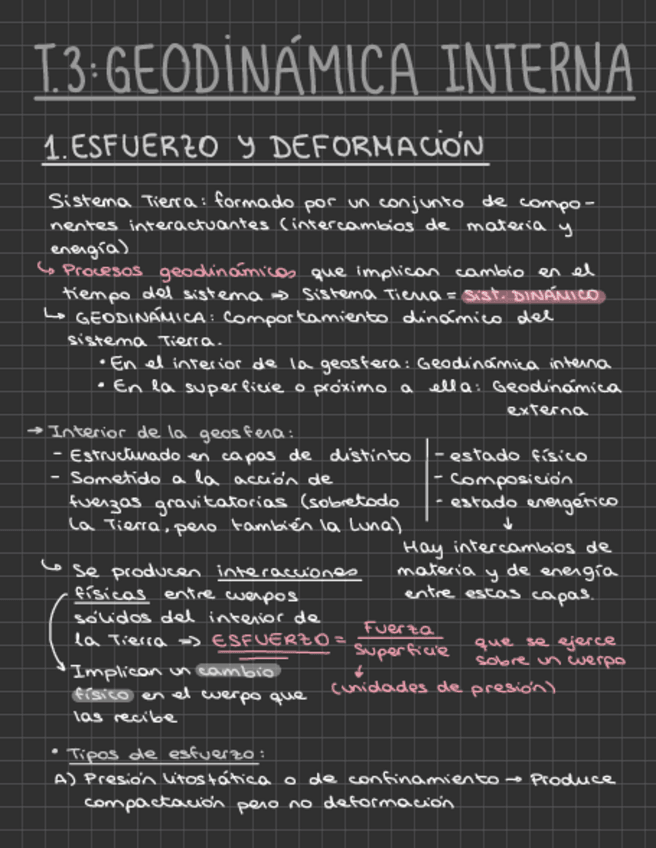 T.3: GEODINÁMICA INTERNA
1. ESFUERZO Y DEFORMACIÓN
Sistema Tierra: formado por un conjunto de compo-
nentes interactuantes (intercambios de materia y
energía)
↳ Procesos geodinámicos que implican cambio en el
tiempo del sistema => Sistema Tierra = SIST. DINÁMICO
↳ GEODINÁMICA: Comportamiento dinámico del
sistema Tierra.
• En el interior de la geosfera: Geodinámica interna
• En la superficie o próximo a ella: Geodinámica
externa
→ Interior de la geosfera:
- Estructurado en capas de distinto
- estado físico
- Composición
- estado energético
- Sometido a la acción de
fuerzas gravitatorias (sobretodo
la Tierra, pero también la Luna)
↓
Hay intercambios de
materia y de energía
entre estas capas.
↳ Se producen interacciones
físicas entre cuerpos
sólidos del interior de
la Tierra => ESFUERZO = Fuerza
Superficie
que se ejerce
sobre un cuerpo
↓
(unidades de presión)
Implican un cambio
físico en el cuerpo que
las recibe
• Tipos de esfuerzo:
A) Presión litostática o de confinamiento → Produce
compactación pero no deformación